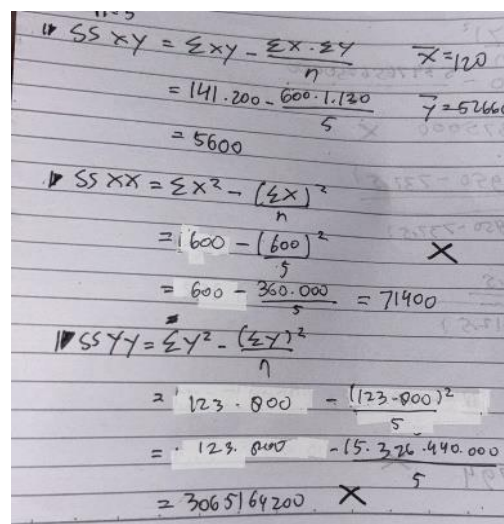 SS XY = ΣXY - ΣX . ΣY / n    X̄ = 120
= 141.200 - 600 . 1.130 / 5    Ȳ = 5266
= 5600
SS XX = ΣX² - (ΣX)² / n
= 600 - (600)² / 5    X
= 600 - 360.000 / 5 = 71400
SS YY = ΣY² - (ΣY)² / n
= 123.000 - (123.000)² / 5
= 123.000 - 15.326.440.000 / 5
= 3065164200 X